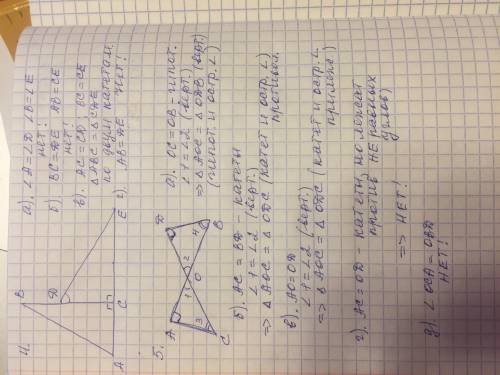 4.
B
D
A
C
E
а). ∠A=∠D ∠B=∠E
нет!
б). BC=DE AB=CE
нет!
в). AC=CD BC=CE
△ABC = △CDE
по двум катетам.
г). AB=AE
нет!
5.
A
D
1
2
O
3
4
C
B
а). OC=OB – гипот.
∠1=∠2 (верт.)
=> △AOC = △ODB (верт)
(гипот. и остр. ∠)
б). AC=BD – катеты
∠1=∠2 (верт.)
=> △AOC = △ODC (катет и остр. ∠)
противол.
в). AO=OD
∠1=∠2 (верт.)
=> △AOC = △ODC (катет и остр. ∠
г). AC=OD – катеты, но лежат
против НЕ равных
углов)
=> НЕТ!
д). ∠OCA=OBD
НЕТ!